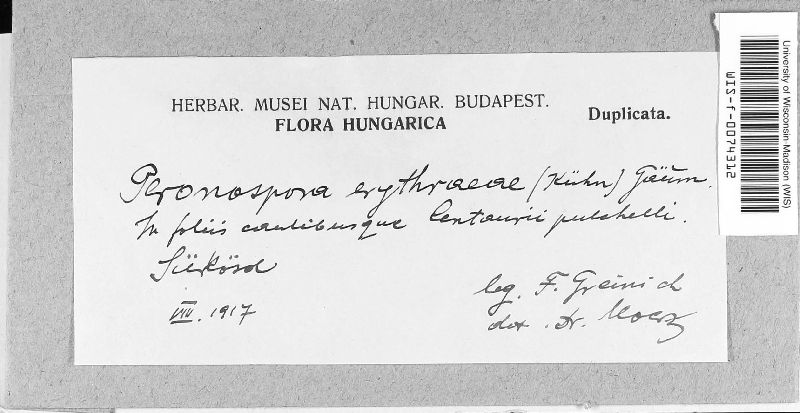 HERBAR. MUSEI NAT. HUNGAR. BUDAPEST.
FLORA HUNGARICA
Duplicata.
Peronospora erythraeae (Kühn) Gäum.
In foliis caulibusque Centaurii pulchelli.
Sükösd
VIII. 1917
leg. F. Greinich
det. Dr. Moesz
University of Wisconsin-Madison (WIS)
WIS-f-0074312